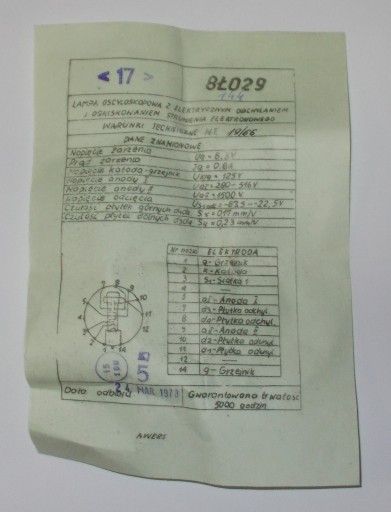 <17>
8Ł029
144
LAMPA OSCYLOSKOPOWA Z ELEKTRYCZNYM ODCHYLANIEM
I OGNISKOWANIEM STRUMIENIA ELEKTRONOWEGO
WARUNKI TECHNICZNE NT. 19/66
DANE ZNAMIONOWE
Napięcie żarzenia Uż = 6,3V
Prąd żarzenia Iż = 0,6A
Napięcie katoda-grzejnik Uk/g = 125V
Napięcie anody I Ua1 = 280-516V
Napięcie anody II Ua2 = 1500V
Napięcie odcięcia -67,5--22,5V
Czułość płytek górnych Sx = 0,11 mm/V
Czułość płytek dolnych Sy = 0,23 mm/V
Nr nóżki ELEKTRODA
1 g-Grzejnik
2 k-Katoda
3 S1-Siatka 1
4 —
5 a1-Anoda I
7 d3-Płytka odchyl.
8 d4-Płytka odchyl.
9 a2-Anoda II
10 d2-Płytka odchyl.
11 d1-Płytka odchyl.
12 —
14 g-Grzejnik
5
24 MAR 1973
Data odbioru
Gwarantowana trwałość
5000 godzin
AWERS